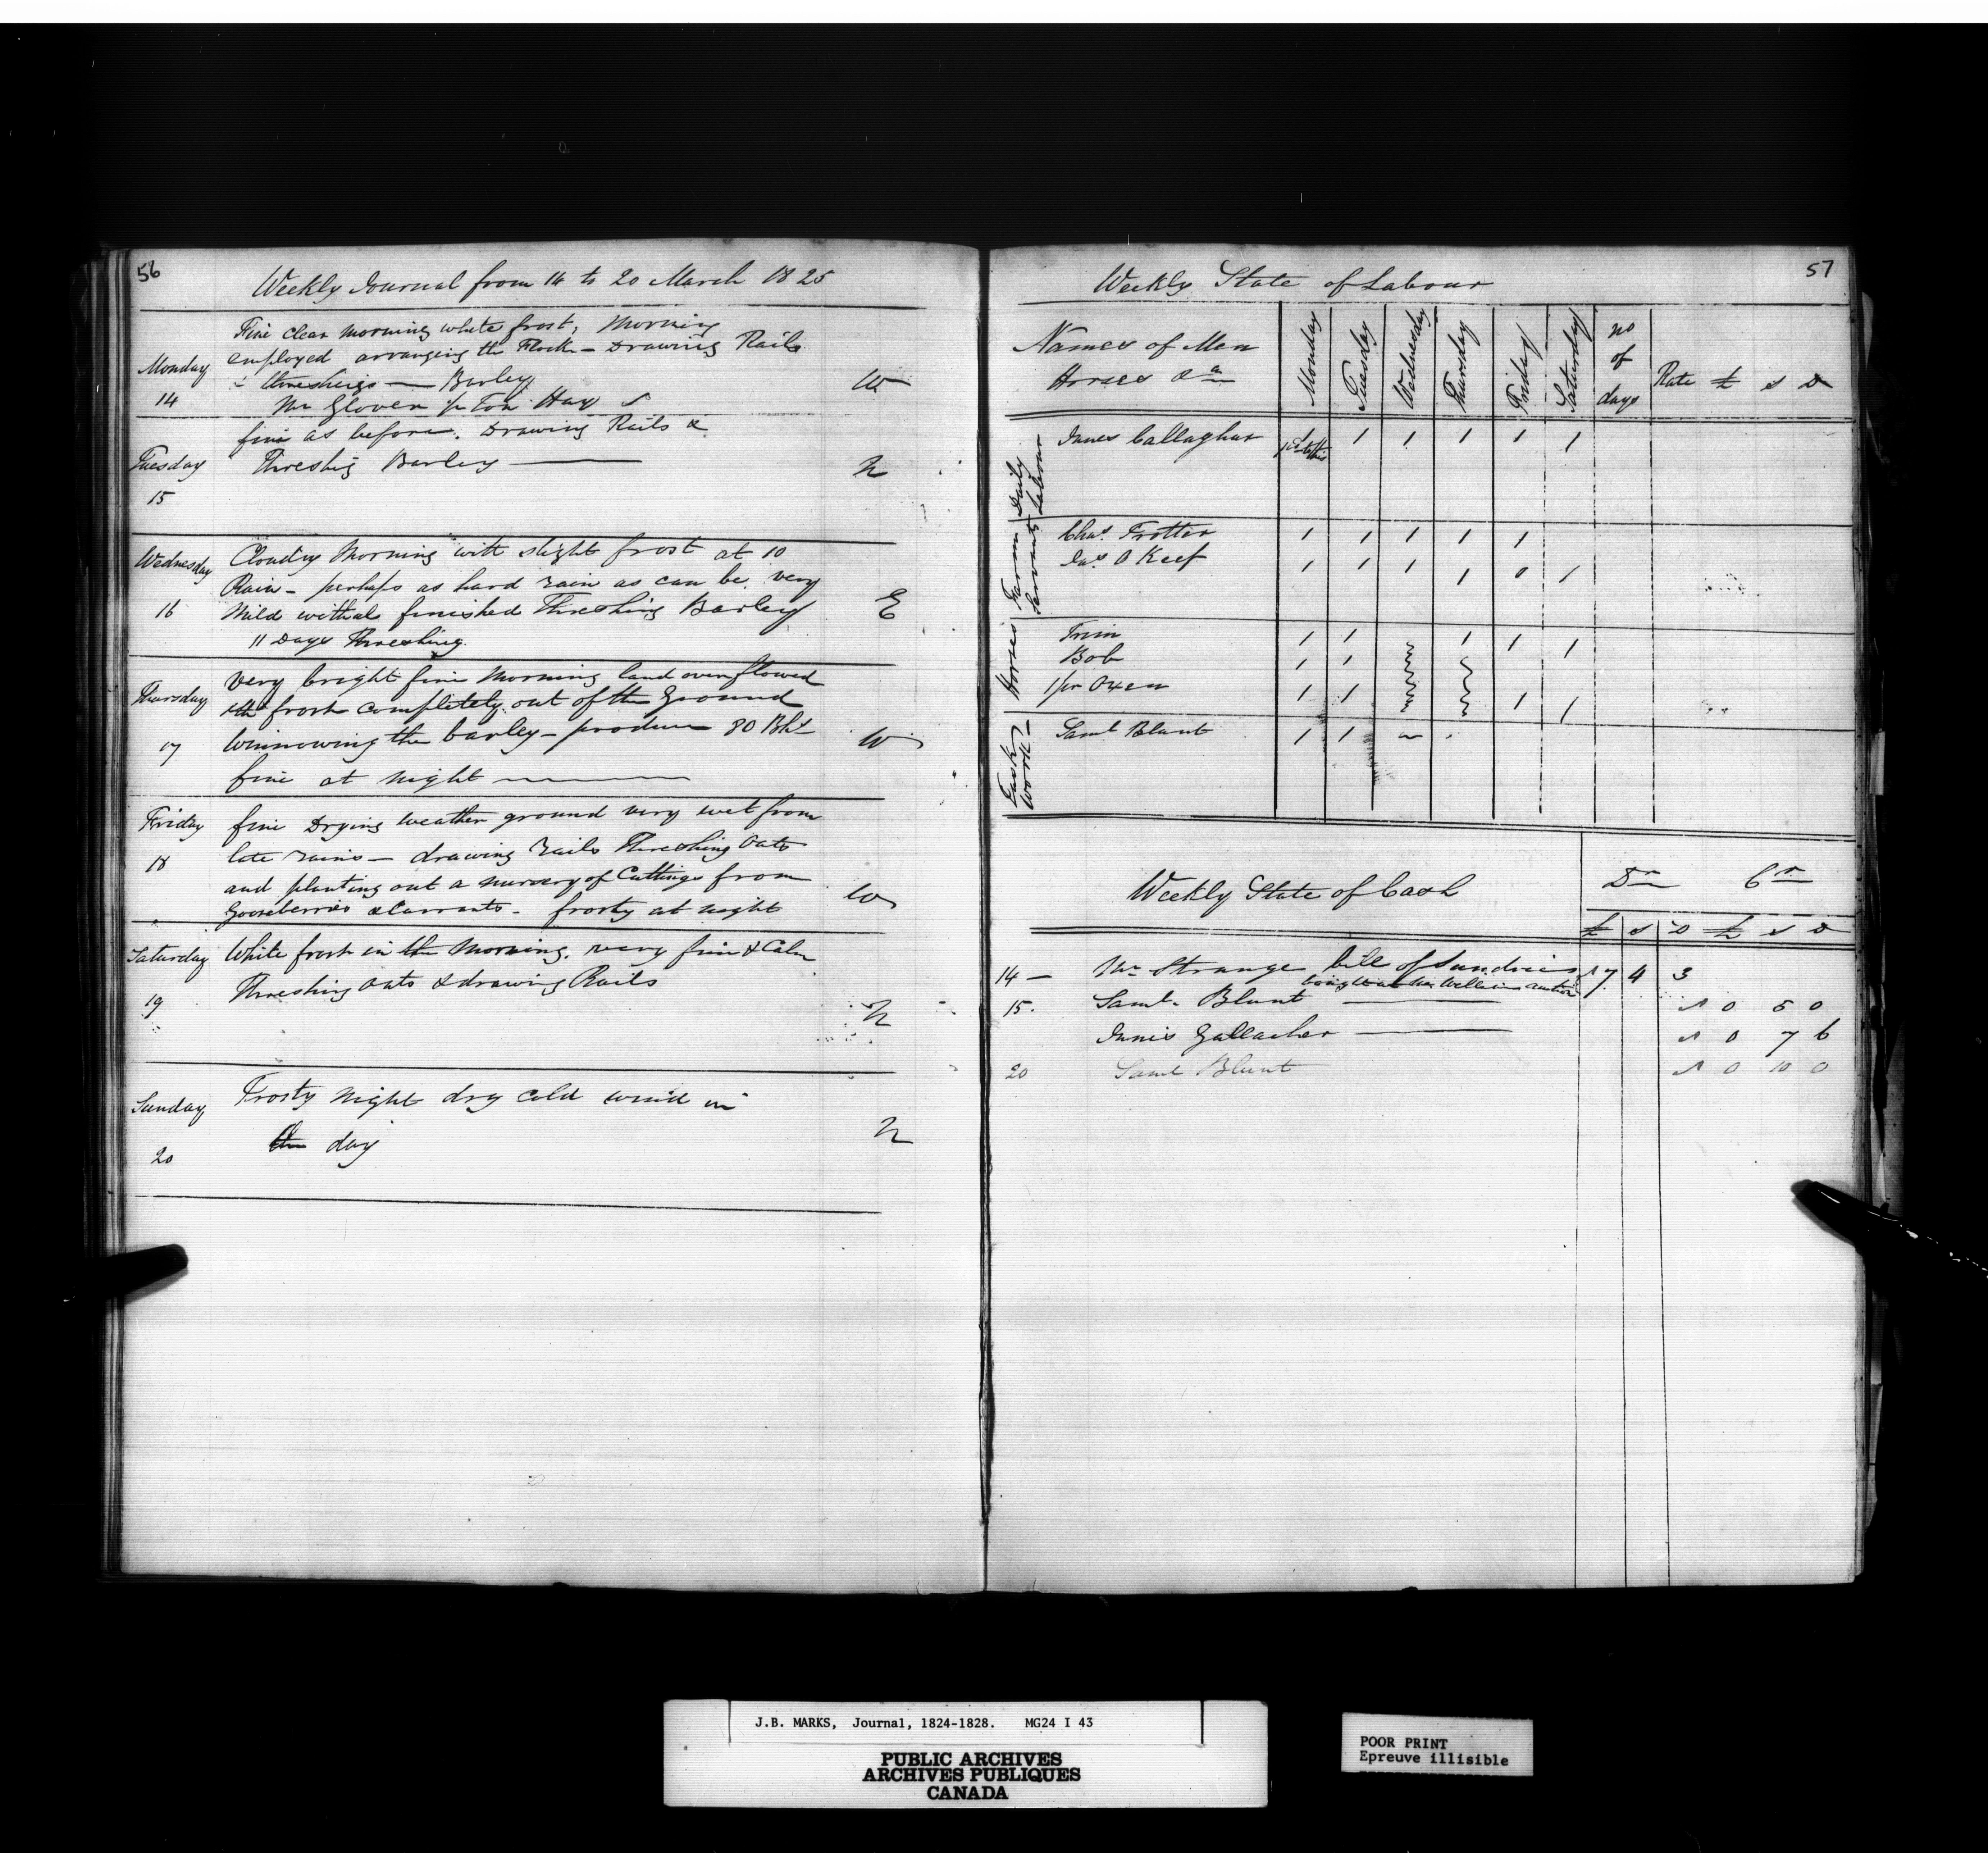 56
Weekly Journal from 14 to 20 March 1825
Monday
14
Fine clear morning white frost, Morning
employed arranging the Flock - Drawing Rails
& threshing — Barley
Mr Glover Ton Hay
W
Tuesday
15
fine as before. Drawing Rails &
Threshig Barley —
N
Wednesday
16
Cloudy Morning with slight frost at 10
Rain - perhaps as hard rain as can be. very
Mild withal finished Threshing Barley
11 Days Threshing.
E
Thursday
17
very bright fine Morning land overflowed
frost completely out of the Ground
Winnowing the barley - produce 80 Bls
fine at night —
W
Friday
18
fine Drying weather ground very wet from
late rains — drawing rails Threshing Oats
and planting out a nursery of Cuttings from
Gooseberries & Currants - frosty at night
W
Saturday
19
White frost in the Morning. very fine & Calm
Threshing Oats & drawing Rails
N
Sunday
20
Frosty night dry cold wind in
the day
N
57
Weekly State of Labour
Names of Men
Horses &a
Monday
Tuesday
Wednesday
Thursday
Friday
Saturday
no
of
days
Rate £ s D
Daily
Labour
Innes Callaghar 1 1 1 1 1
Farm
Servants
Chas. Trotter 1 1 1 1 1
Jas O Keef 1 1 1 1 0 1
Horses
Trim 1 1 1 1 1
Bob 1 1
1 pr Oxen 1 1 1 1
Task
Work
Saml Blunt 1 1
Weekly State of Cash
Dr Cr
£ s D £ s D
14 — Mr Strange bill of Sundries 7 4 3
bought at Mr auction
15. Saml. Blunt — 0 5 0
Innis Gallacher — 0 7 6
20 Saml Blunt 0 10 0
J.B. MARKS, Journal, 1824-1828. MG24 I 43
PUBLIC ARCHIVES
ARCHIVES PUBLIQUES
CANADA
POOR PRINT
Epreuve illisible